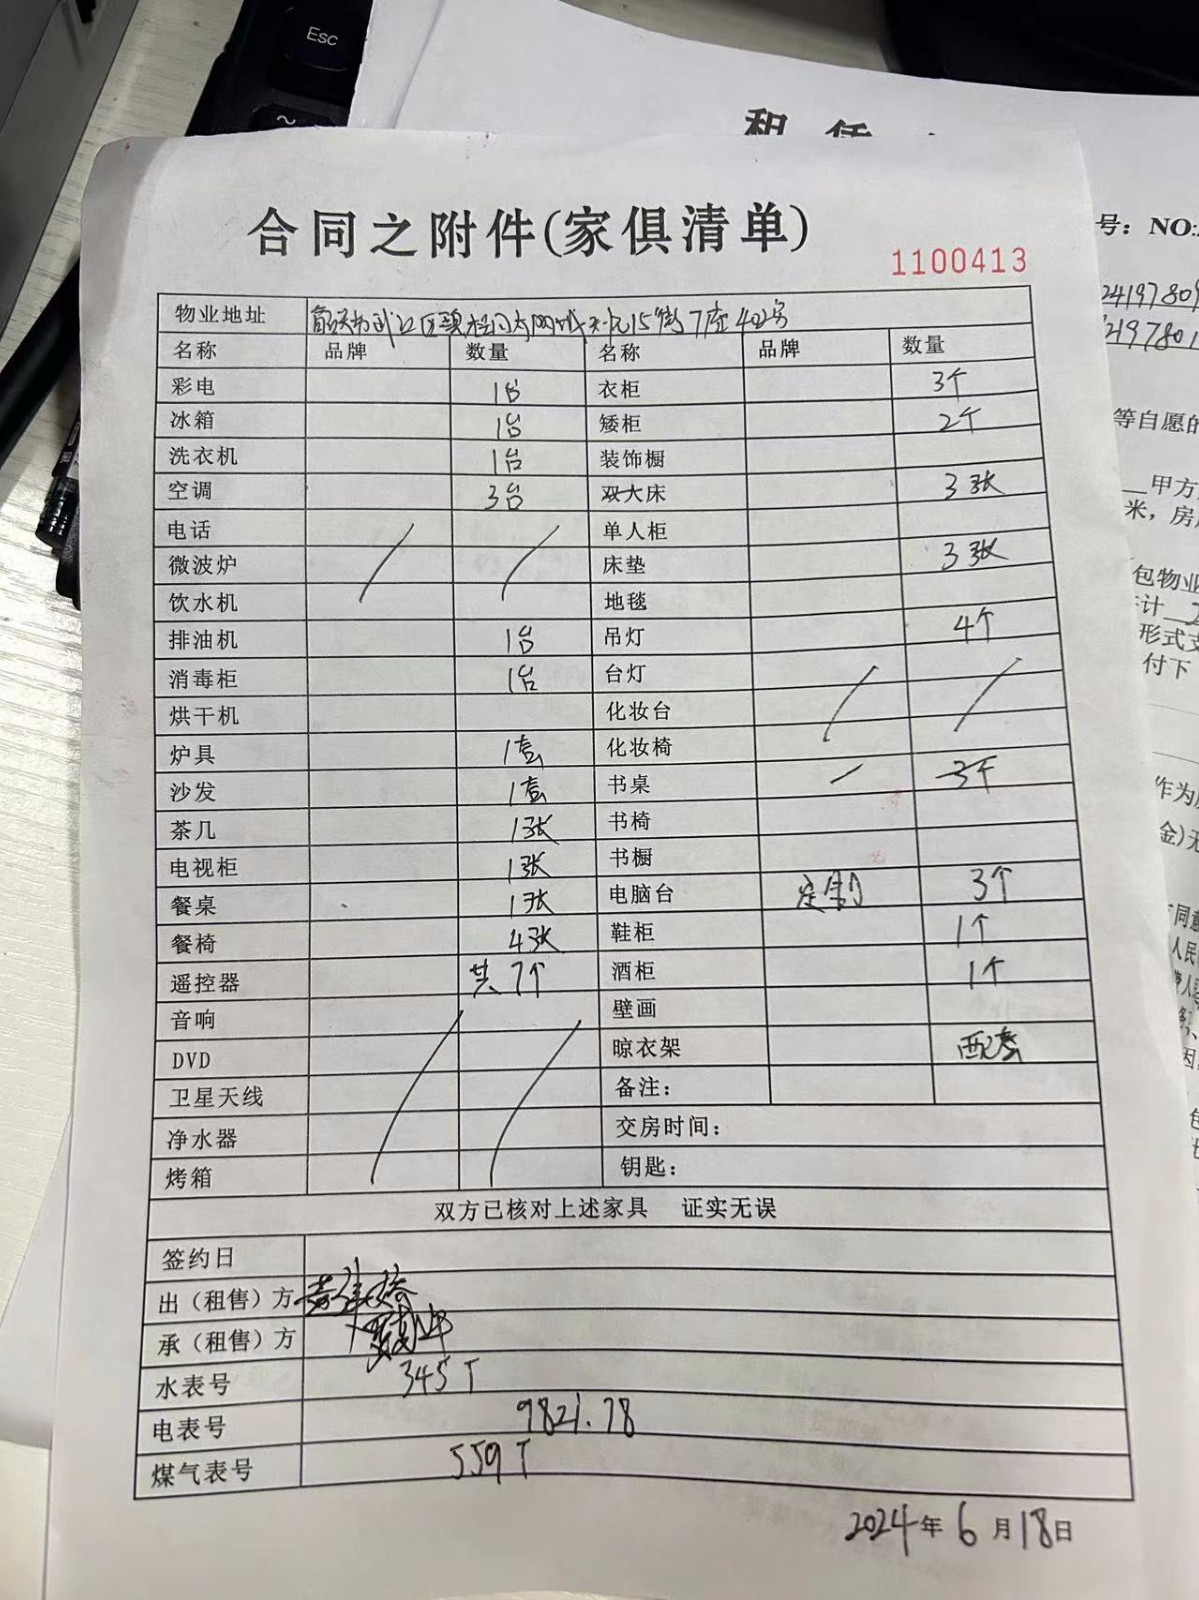 Esc
~
租 赁
号：NO:
24197809
2197801
等自愿的
甲方
米，房
包物业
计
形式支
付下
作为
金)无
同意
人民
合同之附件(家俱清单)
1100413
物业地址 15街7座402房
名称 品牌 数量 名称 品牌 数量
彩电 1台 衣柜 3个
冰箱 1台 矮柜 2个
洗衣机 1台 装饰橱
空调 3台 双大床 3张
电话 单人柜
微波炉 床垫 3张
饮水机 地毯
排油机 1台 吊灯 4个
消毒柜 1台 台灯
烘干机 化妆台
炉具 1套 化妆椅
沙发 1套 书桌 3个
茶几 1张 书椅
电视柜 1张 书橱
餐桌 1张 电脑台 定制 3个
餐椅 4张 鞋柜 1个
遥控器 共7个 酒柜 1个
音响 壁画
DVD 晾衣架 配套
卫星天线 备注：
净水器 交房时间：
烤箱 钥匙：
双方已核对上述家具 证实无误
签约日
出（租售）方
承（租售）方
水表号 345T
电表号 9821.78
煤气表号 559T
2024年6月18日